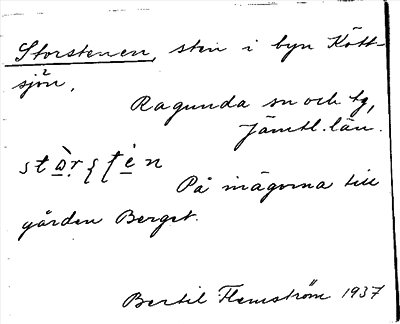 Storstenen, sten i byn Kött-
sjön,
Ragunda sn och tg,
Jämtl. län.
På inägorna till
gården Berget.
Bertil Flemström 1937